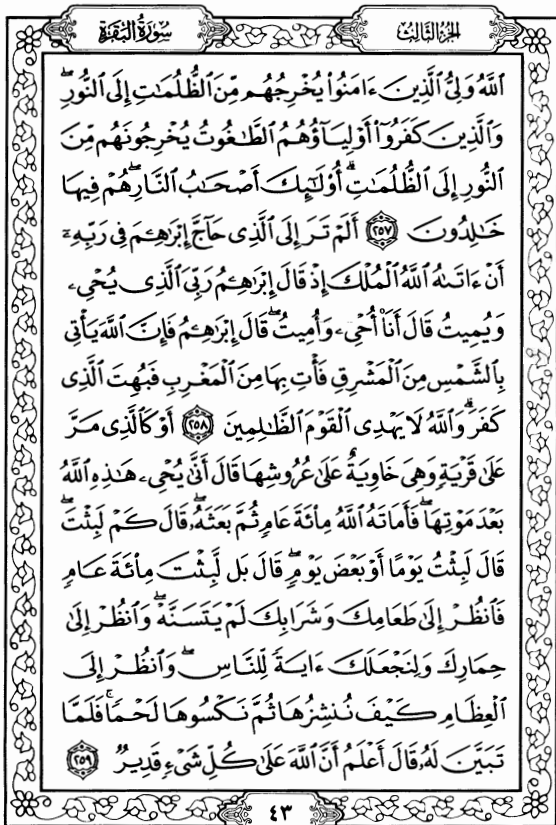 سُورَةُ البَقَرَةِ
الجُزْءُ الثَّالِثُ
ٱللَّهُ وَلِيُّ ٱلَّذِينَ ءَامَنُوا۟ يُخْرِجُهُم مِّنَ ٱلظُّلُمَـٰتِ إِلَى ٱلنُّورِ ۖ
وَٱلَّذِينَ كَفَرُوٓا۟ أَوْلِيَآؤُهُمُ ٱلطَّـٰغُوتُ يُخْرِجُونَهُم مِّنَ
ٱلنُّورِ إِلَى ٱلظُّلُمَـٰتِ ۗ أُو۟لَـٰٓئِكَ أَصْحَـٰبُ ٱلنَّارِ ۖ هُمْ فِيهَا
خَـٰلِدُونَ ٢٥٧ أَلَمْ تَرَ إِلَى ٱلَّذِى حَآجَّ إِبْرَٰهِـۧمَ فِى رَبِّهِۦٓ
أَنْ ءَاتَىٰهُ ٱللَّهُ ٱلْمُلْكَ إِذْ قَالَ إِبْرَٰهِـۧمُ رَبِّىَ ٱلَّذِى يُحْىِۦ
وَيُمِيتُ قَالَ أَنَا۠ أُحْىِۦ وَأُمِيتُ ۖ قَالَ إِبْرَٰهِـۧمُ فَإِنَّ ٱللَّهَ يَأْتِى
بِٱلشَّمْسِ مِنَ ٱلْمَشْرِقِ فَأْتِ بِهَا مِنَ ٱلْمَغْرِبِ فَبُهِتَ ٱلَّذِى
كَفَرَ ۗ وَٱللَّهُ لَا يَهْدِى ٱلْقَوْمَ ٱلظَّـٰلِمِينَ ٢٥٨ أَوْ كَٱلَّذِى مَرَّ
عَلَىٰ قَرْيَةٍ وَهِىَ خَاوِيَةٌ عَلَىٰ عُرُوشِهَا قَالَ أَنَّىٰ يُحْىِۦ هَـٰذِهِ ٱللَّهُ
بَعْدَ مَوْتِهَا ۖ فَأَمَاتَهُ ٱللَّهُ مِا۟ئَةَ عَامٍ ثُمَّ بَعَثَهُۥ ۖ قَالَ كَمْ لَبِثْتَ ۖ
قَالَ لَبِثْتُ يَوْمًا أَوْ بَعْضَ يَوْمٍ ۖ قَالَ بَل لَّبِثْتَ مِا۟ئَةَ عَامٍ
فَٱنظُرْ إِلَىٰ طَعَامِكَ وَشَرَابِكَ لَمْ يَتَسَنَّهْ ۖ وَٱنظُرْ إِلَىٰ
حِمَارِكَ وَلِنَجْعَلَكَ ءَايَةً لِّلنَّاسِ ۖ وَٱنظُرْ إِلَى
ٱلْعِظَامِ كَيْفَ نُنشِزُهَا ثُمَّ نَكْسُوهَا لَحْمًا ۚ فَلَمَّا
تَبَيَّنَ لَهُۥ قَالَ أَعْلَمُ أَنَّ ٱللَّهَ عَلَىٰ كُلِّ شَىْءٍ قَدِيرٌ ٢٥٩
٤٣